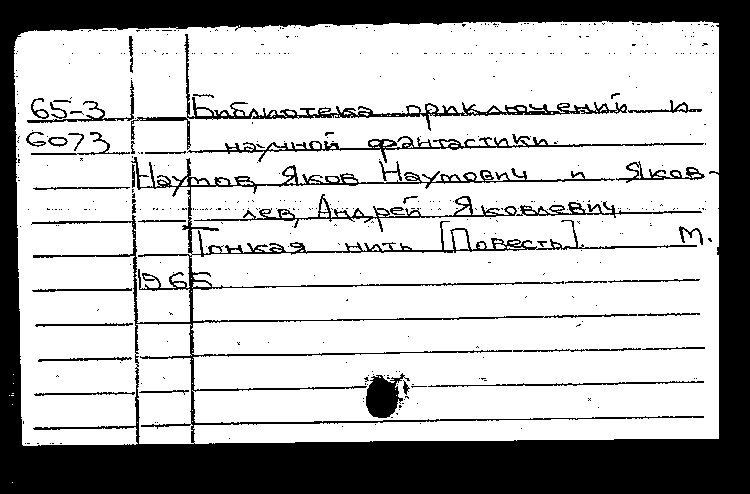 65-3 Библиотека приключений и
6073 научной фантастики.
Наумов, Яков Наумович и Яков-
лев, Андрей Яковлевич.
Тонкая нить [Повесть]. М.,
1965